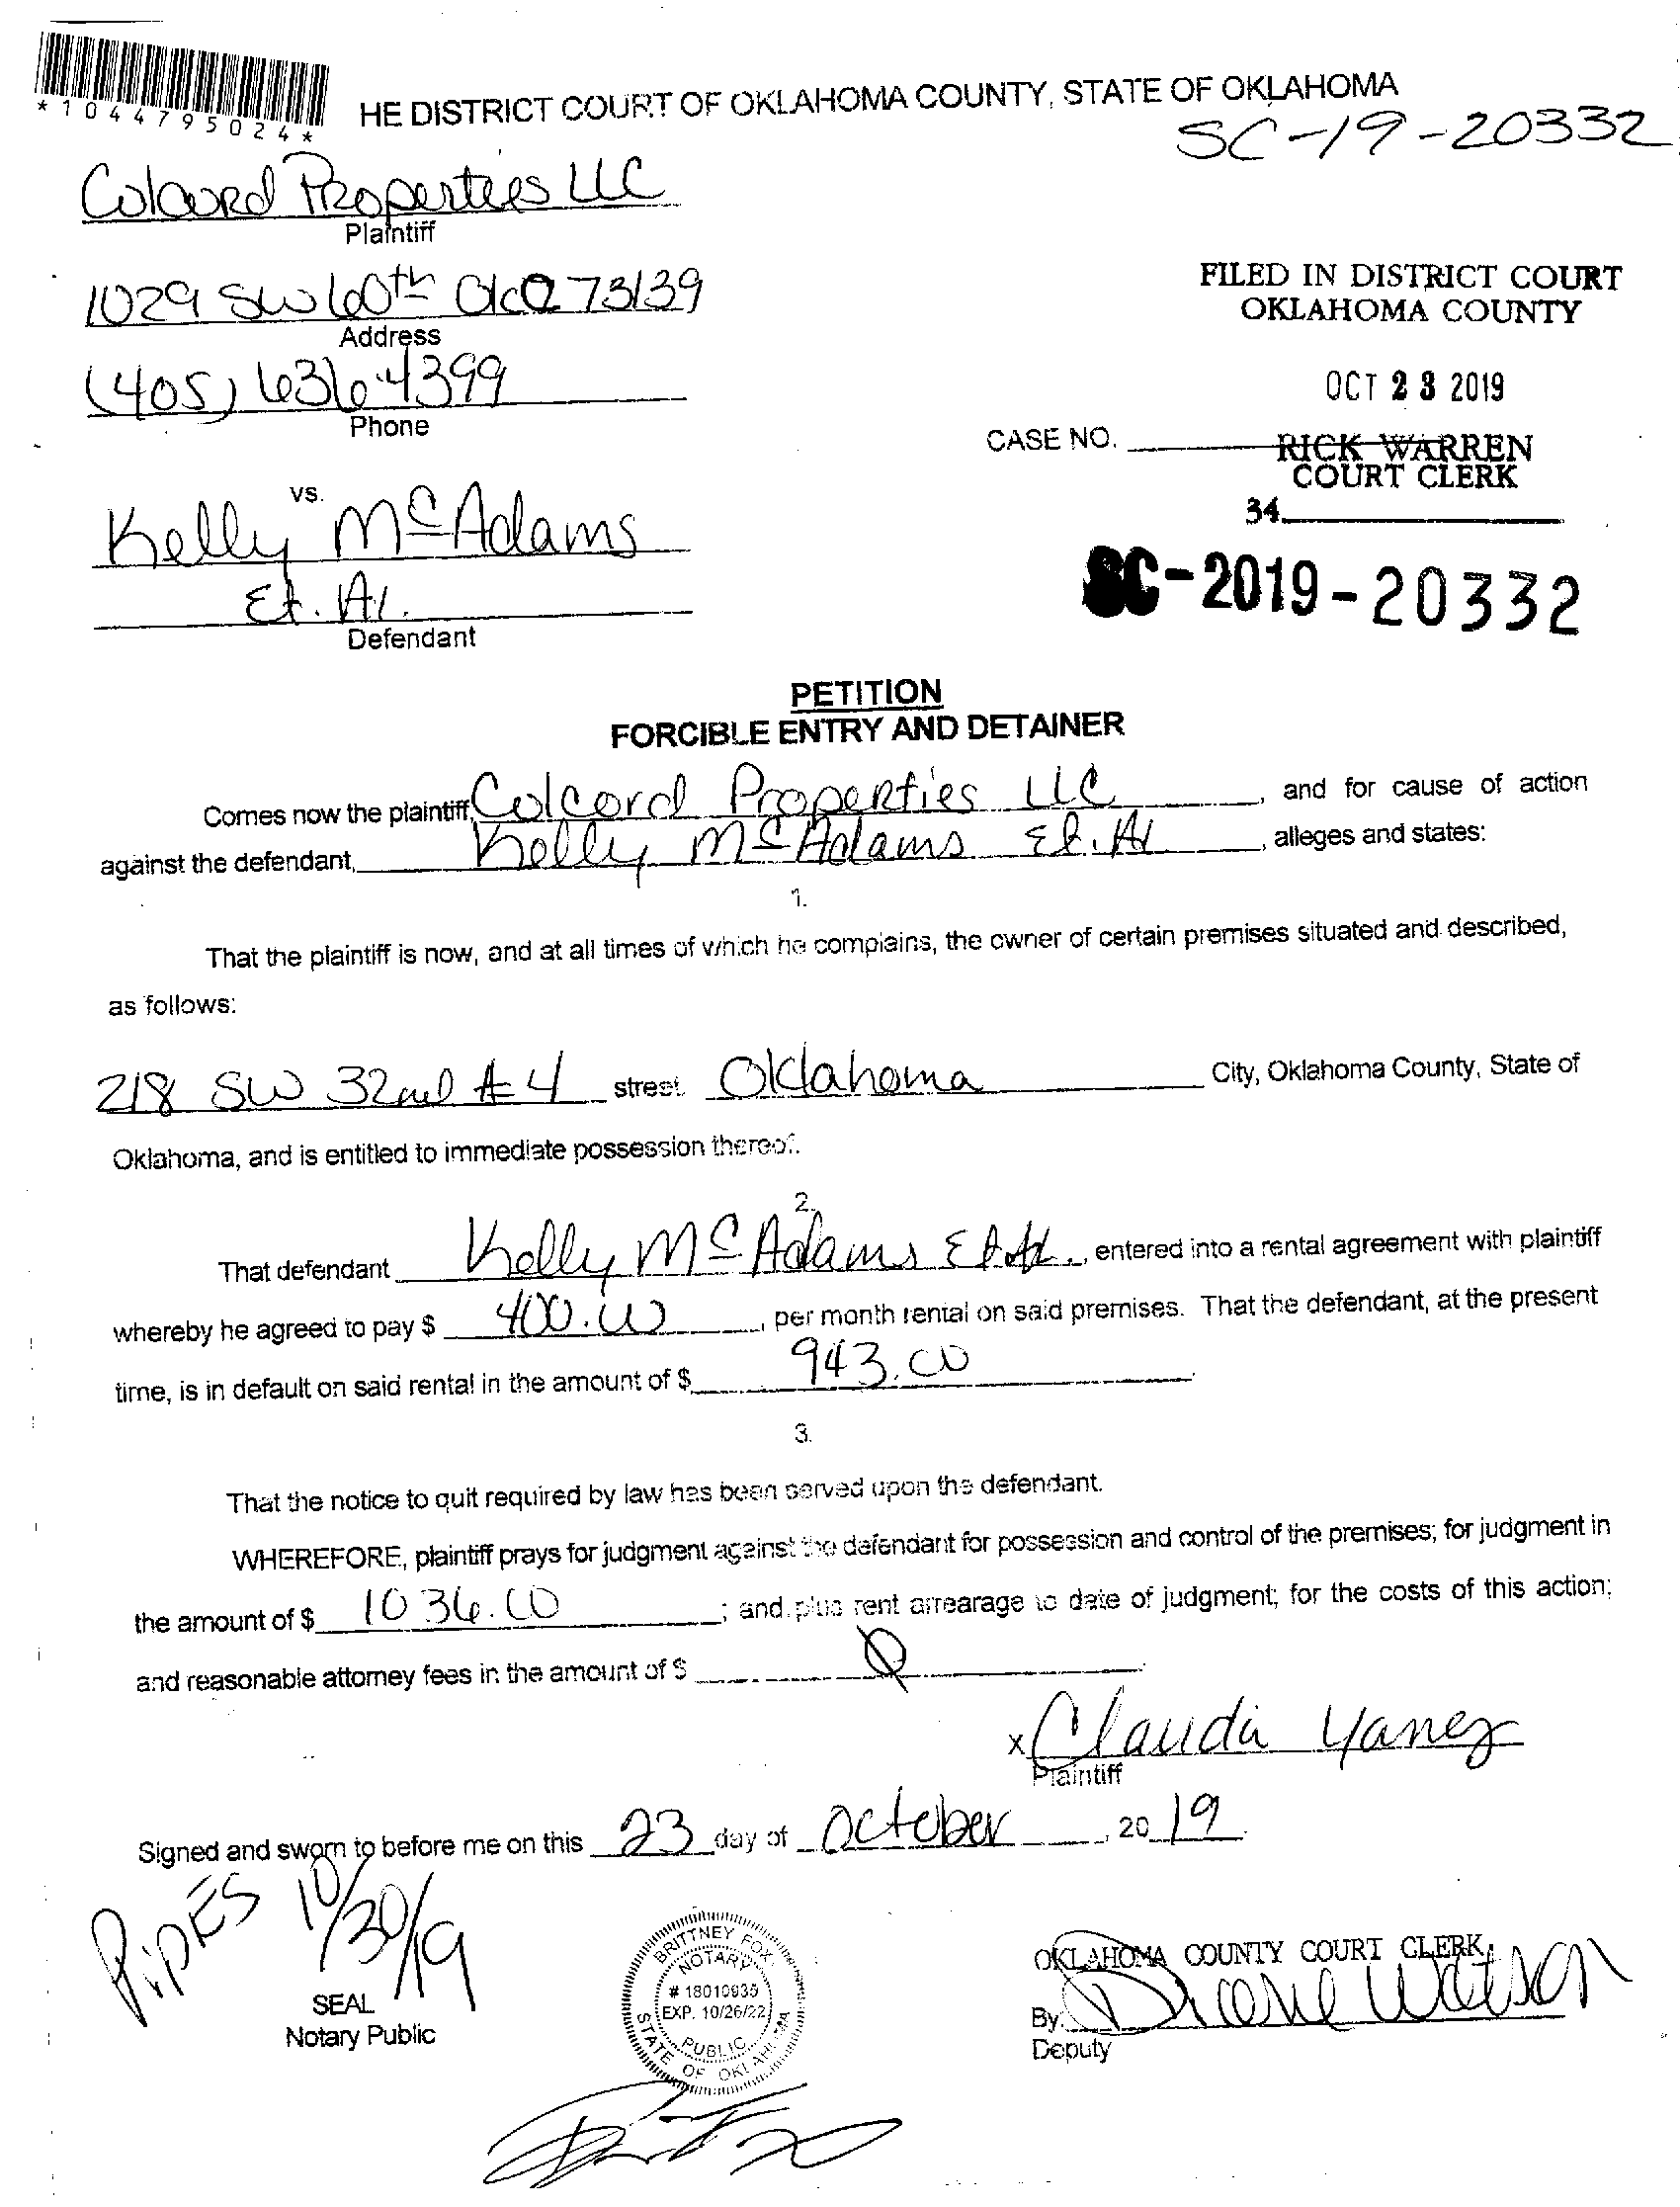 *1044795024*
HE DISTRICT COURT OF OKLAHOMA COUNTY, STATE OF OKLAHOMA
SC-19-20332
Colcord Properties LLC
Plaintiff
1029 SW 60th OKC 73139
Address
(405) 636-4399
Phone
FILED IN DISTRICT COURT
OKLAHOMA COUNTY
OCT 23 2019
CASE NO.
RICK WARREN
COURT CLERK
34
vs.
Kelly McAdams
Et. Al.
Defendant
SC-2019-20332
PETITION
FORCIBLE ENTRY AND DETAINER
Comes now the plaintiff, Colcord Properties LLC, and for cause of action
against the defendant, Kelly McAdams Et. Al, alleges and states:
1.
That the plaintiff is now, and at all times of which he complains, the owner of certain premises situated and described,
as follows:
218 SW 32nd #4 street, Oklahoma City, Oklahoma County, State of
Oklahoma, and is entitled to immediate possession thereof.
2.
That defendant Kelly McAdams Et. Al., entered into a rental agreement with plaintiff
whereby he agreed to pay $ 400.00, per month rental on said premises. That the defendant, at the present
time, is in default on said rental in the amount of $ 943.00
3.
That the notice to quit required by law has been served upon the defendant.
WHEREFORE, plaintiff prays for judgment against the defendant for possession and control of the premises; for judgment in
the amount of $ 1036.00; and plus rent arrearage to date of judgment; for the costs of this action;
and reasonable attorney fees in the amount of $ 0
x Claudia Yanez
Plaintiff
Signed and sworn to before me on this 23 day of October, 2019.
PIPES 10/30/19
SEAL
Notary Public
BRITTNEY FOX
NOTARY
# 18010935
EXP. 10/26/22
PUBLIC
STATE OF OKLAHOMA
OKLAHOMA COUNTY COURT CLERK
By: Diane Watson
Deputy